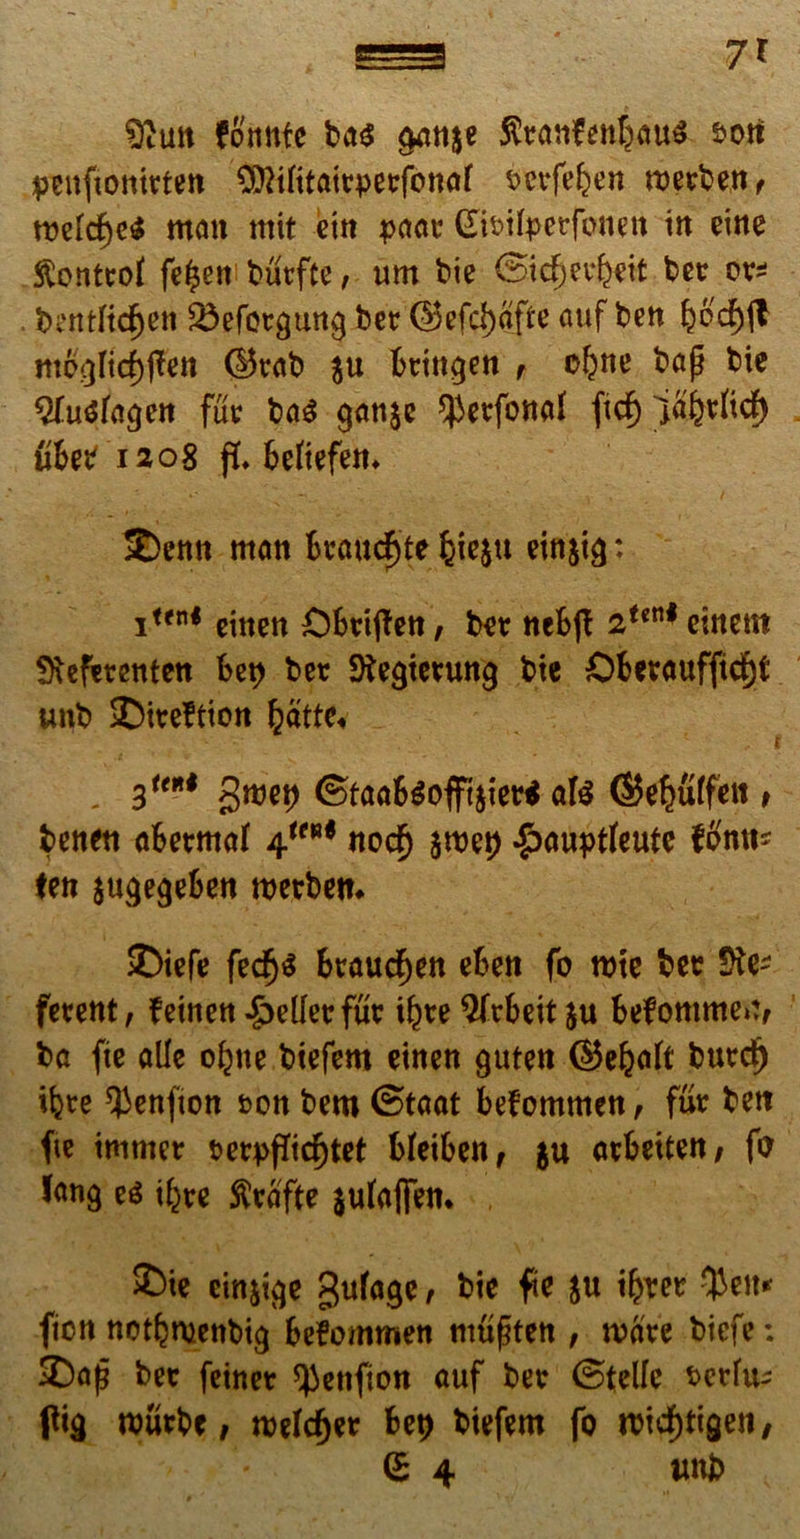 71
Nun könnte das ganze Krankenhaus von
pensionirten Militairpersonal versehen werden,
welches man mit ein paar Civilpersonen in eine
Kontrol setzen dürfte, um die Sicherheit der or-
dentlichen Besorgung der Geschäfte auf den höchst
möglichsten Grad zu bringen, ohne daß die
Auslagen für das ganze Personal sich jährlich
über 1208 fl. beliefen.
Denn man brauchte hiezu einzig:
1tens einen Obristen, der nebst 2tens einem
Referenten bey der Regierung die Oberaufsicht
und Direktion hätte.
3tens Zwey Staabsoffiziers als Gehülfen,
denen abermal 4tens noch zwey Hauptleute könn-
ten zugegeben werden.
Diese sechs brauchen eben so wie der Re-
ferent, keinen Heller für ihre Arbeit zu bekommen,
da sie alle ohne diesem einen guten Gehalt durch
ihre Pension von dem Staat bekommen, für den
sie immer verpflichtet bleiben, zu arbeiten, so
lang es ihre Kräfte zulassen.
Die einzige Zulage, die sie zu ihrer Pen-
sion nothwendig bekommen müßten, wäre diese:
Daß der seiner Pension auf der Stelle verlu-
stig würde, welcher bey diesem so wichtigen,
E 4 und